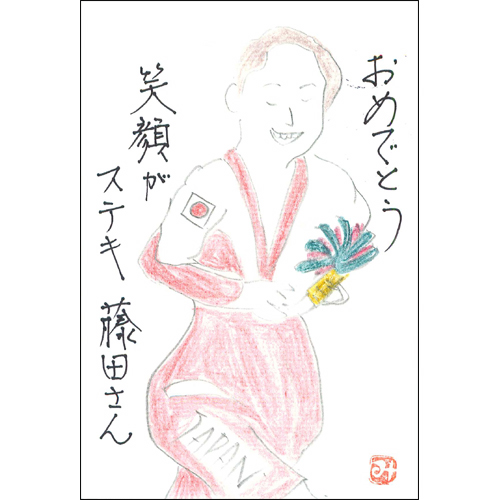 おめでとう
笑顔が
ステキ 藤田さん
JAPAN
み